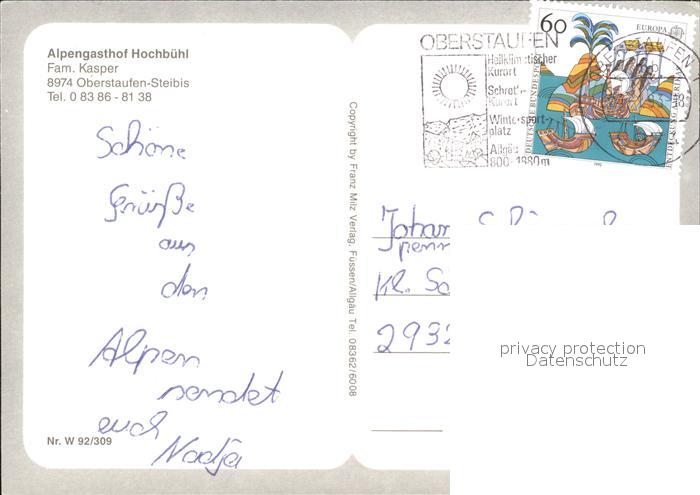 Alpengasthof Hochbühl
Fam. Kasper
8974 Oberstaufen-Steibis
Tel. 0 83 86 - 81 38
Schöne
Grüße
aus
den
Alpen
sendet
euch
Nadja
Nr. W 92/309
Copyright by Franz Milz Verlag, Füssen/Allgäu Tel. 08362/6008
OBERSTAUFEN
Heilklimatischer
Kurort
Schroth-
Kurort
Wintersport-
platz
Allgäu
800-1880m
60
EUROPA
DEUTSCHE BUNDESPOST
ENTDECKUNG AMERIKAS
1992
Johan
Kl. Sc
2932
privacy protection
Datenschutz